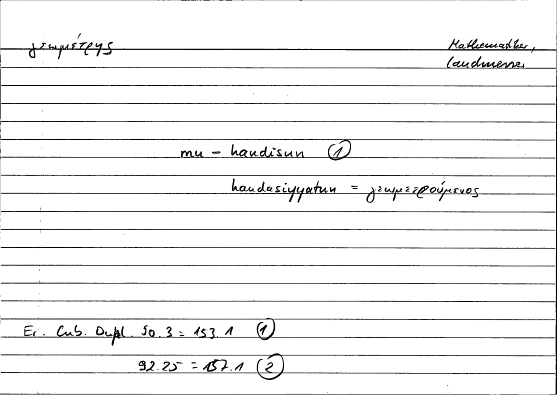 γεωμέτρης
Mathematiker,
Landmesser
mu – handisun ①
handasiyyatun = γεωμετρούμενος
Er. Cub. Dupl. 50.3 = 153.1 ①
92.25 = 157.1 ②